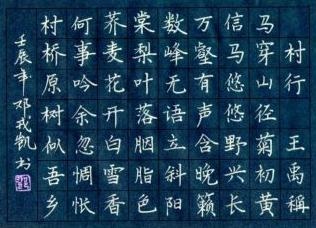 村行 王禹稱
马穿山径菊初黄
信马悠悠野兴长
万壑有声含晚籁
数峰无语立斜阳
棠梨叶落胭脂色
荞麦花开白雪香
何事吟余忽惆怅
村桥原树似吾乡
壬辰年邓我凯书